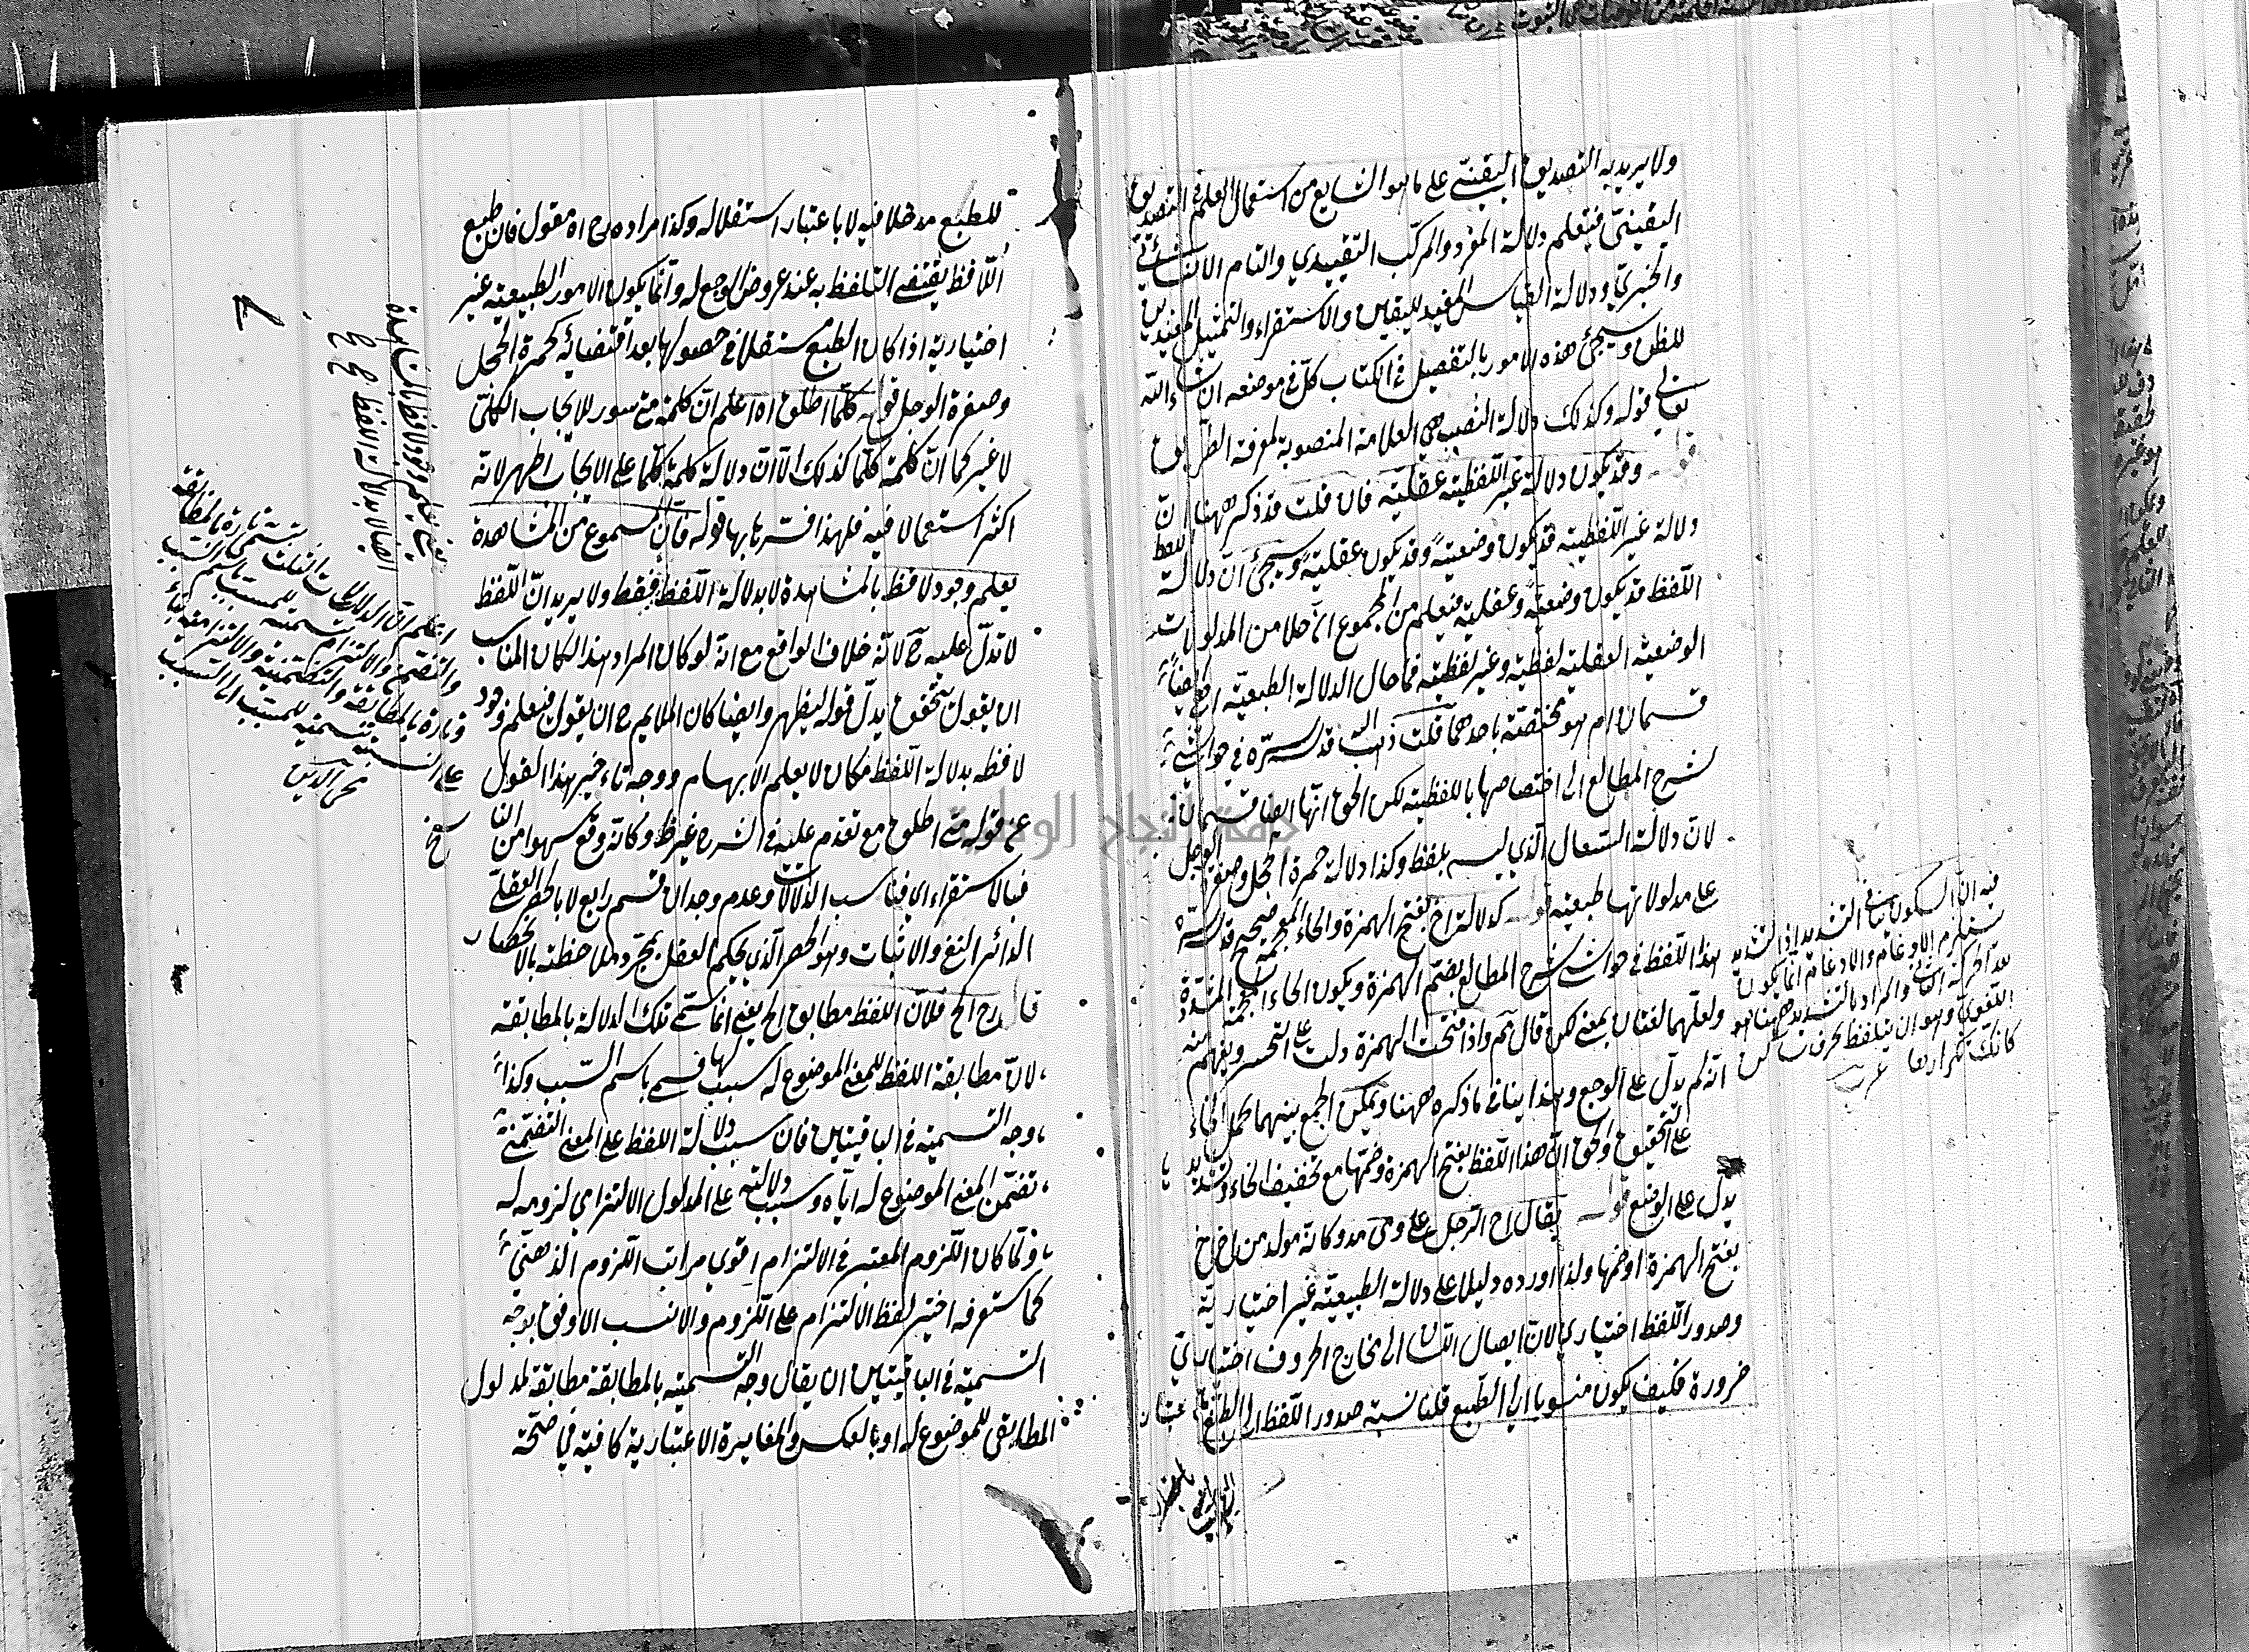 ولا يريد به التصديق اليقيني على ما هو الشايع من استعمال العلم في التصديق
اليقيني فيتعلم دلالة المفرد والمركب التقييدي والتام الانشائي
والخبري ودلالة القياس المفيد لليقين والاستقراء والتمثيل المفيدين
للظن وسيجئ هذه الامور بالتفصيل في الكتاب كل في موضعه ان شاء الله
تعالى قوله وكذلك دلالة النصب هي العلامة المنصوبة لمعرفة الطريق
قوله وقد يكون دلالة غير اللفظية عقلية فان قلت قد ذكر ههنا ان
دلالة غير اللفظية قد يكون وضعية وقد يكون عقلية وسيجئ ان دلالة
اللفظ قد يكون وضعية وعقلية فيعلم من المجموع ان كلا من المدلولات
الوضعية العقلية لفظية وغير لفظية فما حال الدلالة الطبيعية اهي ايضا
قسمان ام هو مختصة باحدهما قلت ذهب السيد قدس سره في حواشي
شرح المطالع الى اختصاصها باللفظية لكن الحق انها ايضا قسمان
لان دلالة السعال الذي ليس بلفظ وكذا دلالة حمرة الخجل وصفرة الوجل
على مدلولاتها طبعية قوله كدلالة اخ بفتح الهمزة والخاء المعجمة صحح قدس سره
هذا اللفظ في حواشي شرح المطالع بضم الهمزة وبكون الخاء المعجمة المشددة
ولعلهما لغتان بمعنى لكن قال ثم واذا فتحت الهمزة دلت على التحسر ويفهم منه
انه لم يدل على الوجع وهذا ينافي ما ذكره ههنا ويمكن الجمع بينهما بحمل الخاء
على التحقيق والحق ان هذا اللفظ بفتح الهمزة وضمها مع تخفيف الخاء وتشديدها
يدل على الوضع قوله يقال اح الرجل على وزن مد وكانه مولد من اخ اخ
بفتح الهمزة او ضمها ولذا اورده دليلا على دلالة الطبيعية غير اختيارية
وصدور اللفظ اختياري لان ايصال اللسان الى مخارج الحروف اختياري
ضرورة فكيف يكون منسوبا الى الطبع قلنا نسبة صدور اللفظ الى الطبع باعتبار ان
فيه ان السكون ينافي التشديد اذ التشديد
يستلزم الادغام والادغام انما يكون
بعد حركة الثاني والمراد بالتشديد ههنا هو
اللغوي وهو ان يتلفظ بحرف ساكن
كانك تكرارها
للطبع مدخلا فيه لا باعتبار استقلاله وكذا مراده ح اه مقول فان طبع
اللافظ يقتضي التلفظ به عند عروض الوجع له وانما يكون الامور الطبيعية غير
اختيارية اذا كان الطبع مستقلا في حصولها بعد اقتضائه كحمرة الخجل
وصفرة الوجل قوله كلما اطلق اه اعلم ان كلمة متى سور للايجاب الكلي
لا غير كما ان كلمة كلما كذلك الا ان دلالة كلمة كلما على الايجاب اظهر لانه
اكثر استعمالا فيه فلهذا فسرنا بها قوله فان المسموع من المشاهدة
يعلم وجود لافظ بالمشاهدة لا بدلالة اللفظ فقط ولا يريد ان اللفظ
لا تدل عليه ح لانه خلاف الواقع مع انه لو كان المراد هذا لكان المناسب
ان يقول يتحقق بدل قوله ليظهر وايضا كان الملايم ح ان يقول فيعلم وجود
لافظه بدلالة اللفظ مكان لا يعلم الا بهما ووجه تاخير هذا القول
عن قوله متى اطلق مع تقدم عليه في الشرح غير ظ وكانه وقع سهوا من الناسخ
فبالاستقراء اي فبتناسب الدلالات وعدم وجدان قسم رابع لا بالحصر العقلي
الدائر النفي والاثبات وهو الحصر الذي يحكم العقل بمجرد ملاحظته بالانحصار
قال رح الخ فلان اللفظ مطابق الخ يعني انما سمي تلك الدلالة بالمطابقة
لان مطابقة اللفظ للمعنى الموضوع له سبب لها فسمي باسم السبب وكذا
وجه التسمية في الباقيتين فان سبب دلالة اللفظ على المعنى التضمني
تضمن المعنى الموضوع له اياه وسبب دلالته على المدلول الالتزامي لزومه له
ولما كان اللزوم المعتبر في الالتزام اقوى مراتب اللزوم الذهني
كما ستعرفه اختير لفظ الالتزام على اللزوم والانسب الاوفق بوجه
التسمية في الباقيتين ان يقال وجه التسمية بالمطابقة مطابقة لمدلول
المطابقي للموضوع له او بالعكس والمغايرة الاعتبارية كافية في صحة
اعلم ان الدلالات الثلث يسمى تارة بالمطابقة
والتضمن والالتزام تسمية للمسبب باسم السبب
وتارة بالمطابقة والتضمنية والالتزامية بناء
على النسبة تسمية للمسبب الى السبب
محي الدين